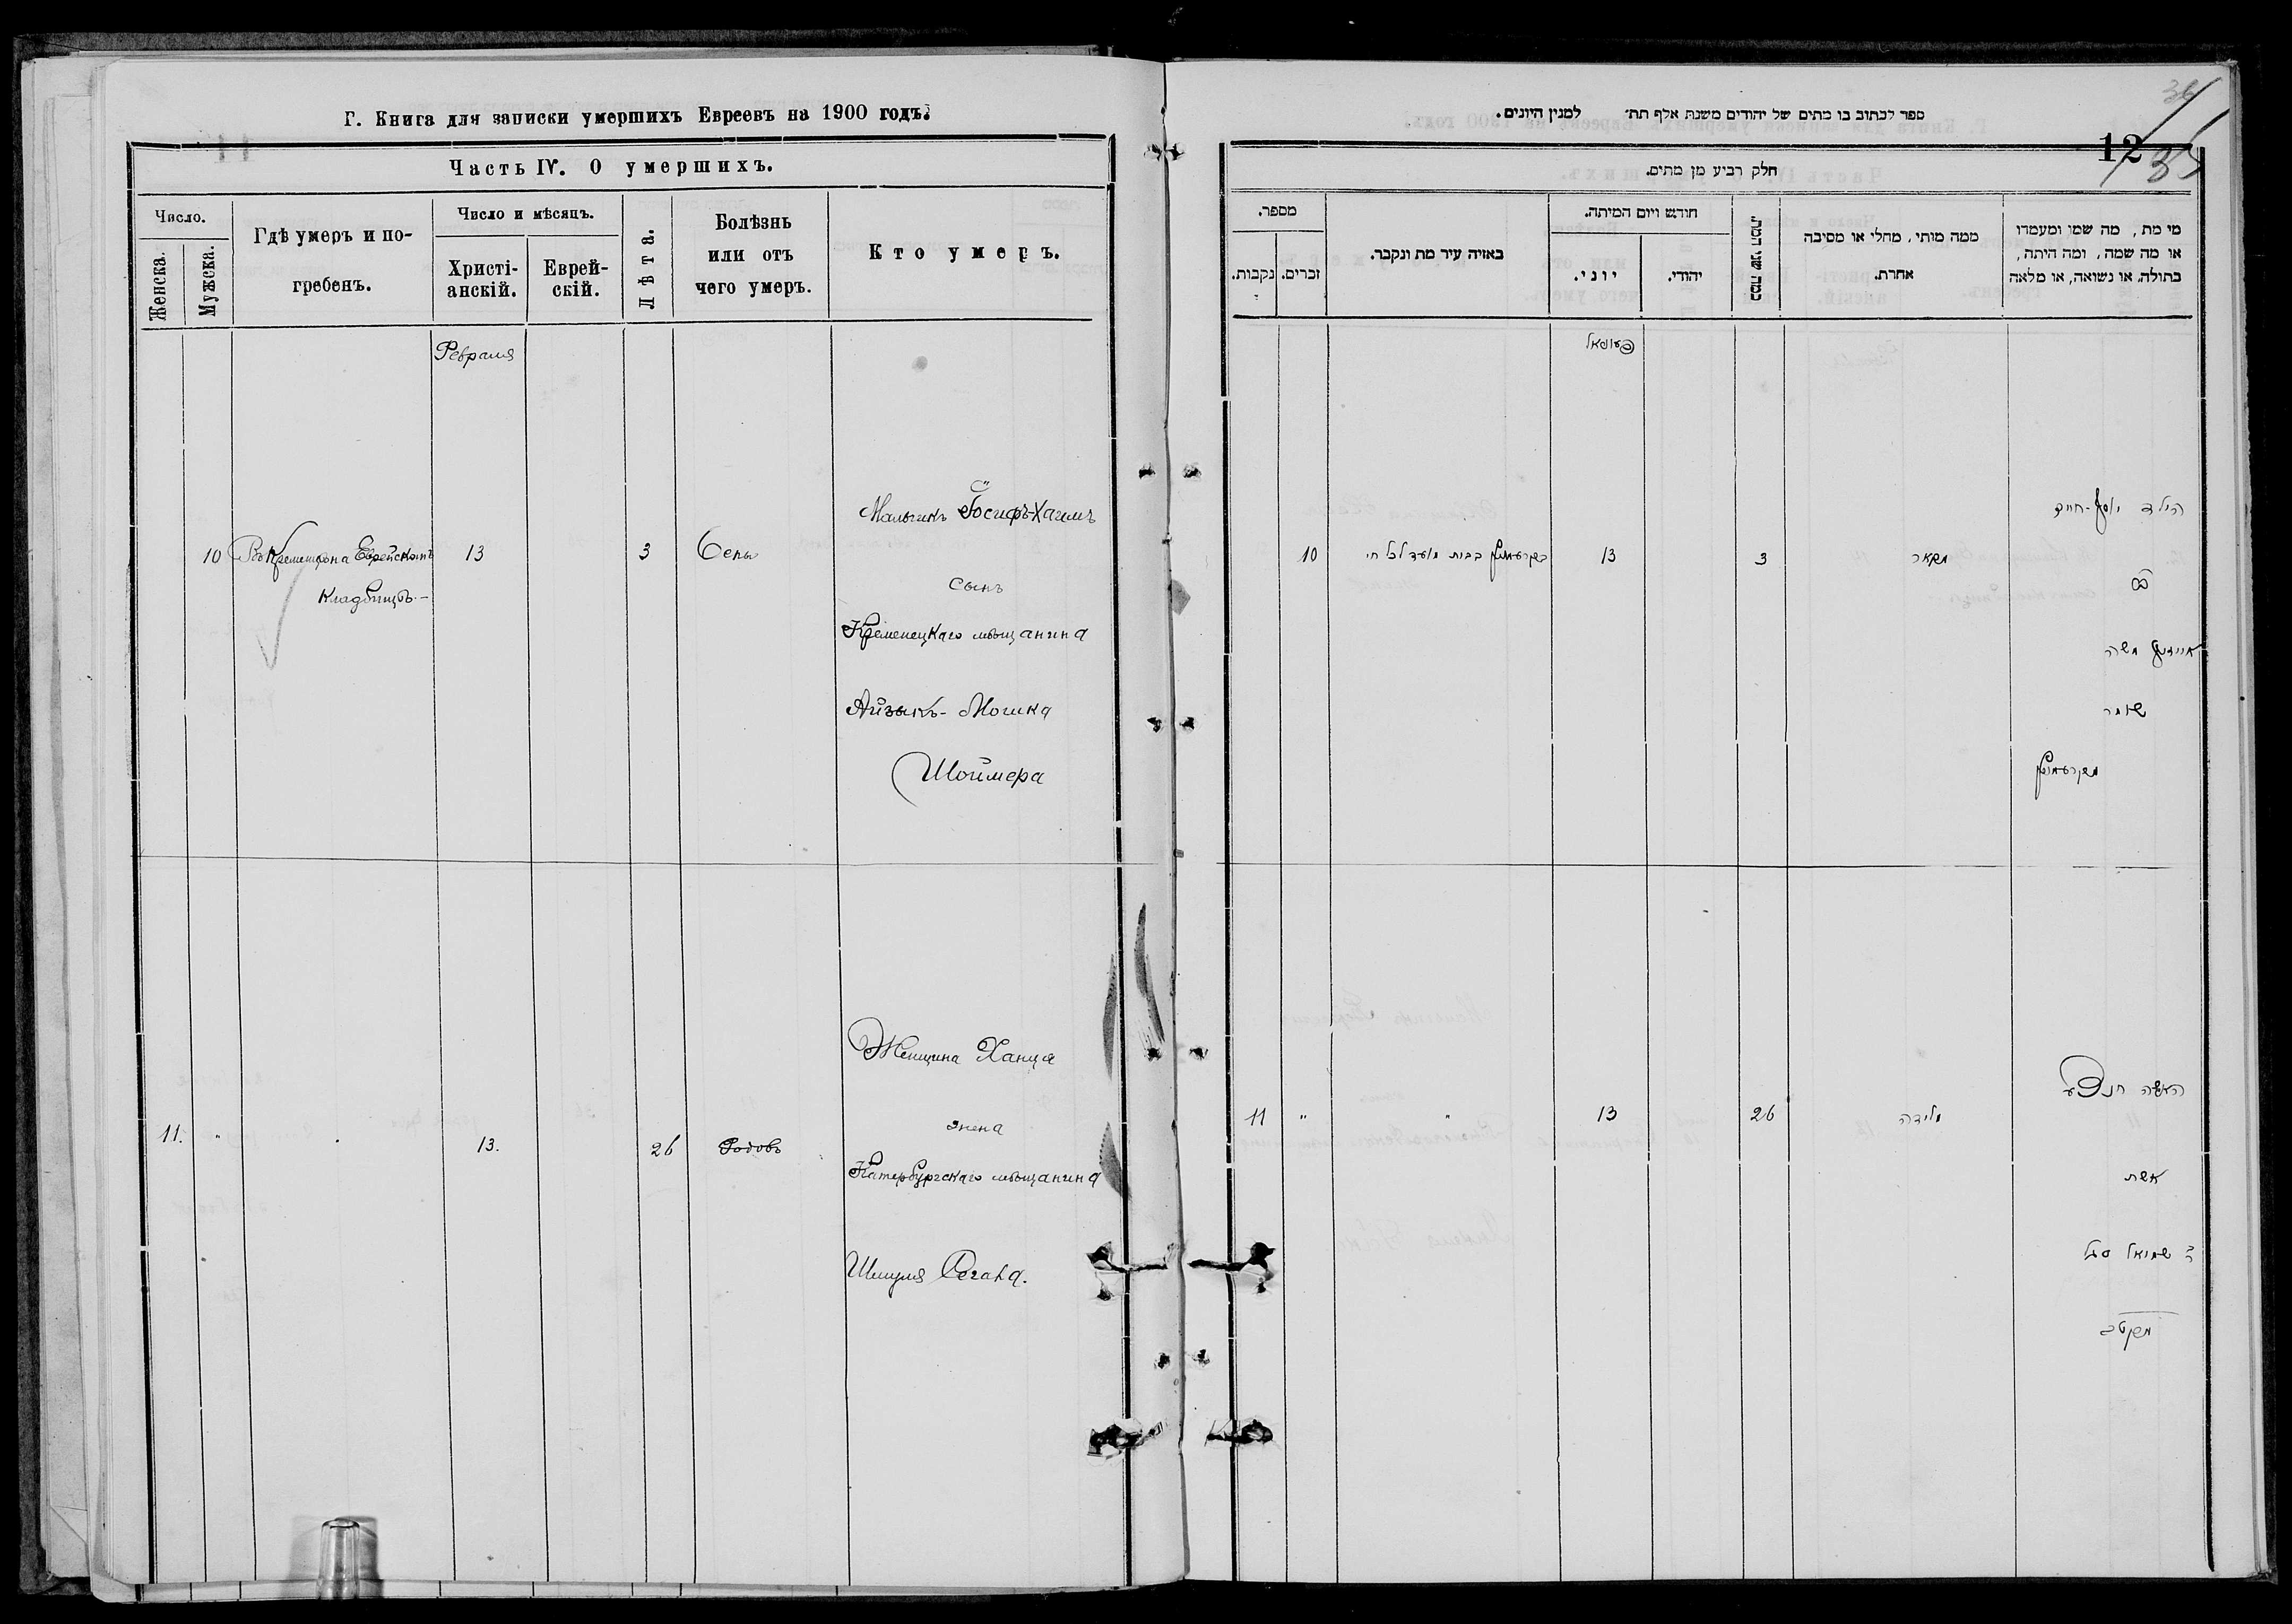 Г. Книга для записки умершихъ Евреевъ на 1900 годъ.
Часть IV. О умершихъ.
Число.
Женска.
Мужска.
Гдѣ умеръ и по-
гребенъ.
Число и мѣсяцъ.
Христі-
анскій.
Еврей-
скій.
Лѣта.
Болѣзнь
или отъ
чего умеръ.
Кто умеръ.
Февраля
10 Въ Кременцѣ на Еврейскомъ 13 3 Оспы
кладбищѣ.
Мальчикъ Іосифъ-Хаимъ
сынъ
Кременецкаго мѣщанина
Айзыкъ-Мошка
Шоймера
11. " " 13. 26 Родовъ
Женщина Ханця
жена
мѣщанина
Шмуля Сегала.
ספר לכתוב בו מתים של יהודים משנת אלף תת׳ למנין היונים.
36
12
35
חלק רביע מן מתים.
מספר.
נקבות.
זכרים.
באזיה עיר מת ונקבר.
חודש ויום המיתה.
יוני.
יהודי.
כמה שני המת.
ממה מותי, מחלי או מסיבה
אחרת.
מי מת, מה שמו ומעמדו
או מה שמה, ומה היתה,
בתולה, או נשואה, או מלאה
10 בקרעמניץ בבית מועד לכל חי 13 3
הילד יוסף-חיים
בן
משה
שומר
מקרעמניץ
11 " " 13 26 מלידה
האשה חנצע
אשת
ר' שמואל סגל